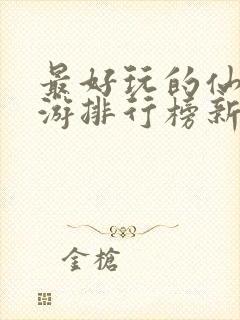 最好玩的仙
游排行榜新
金槍